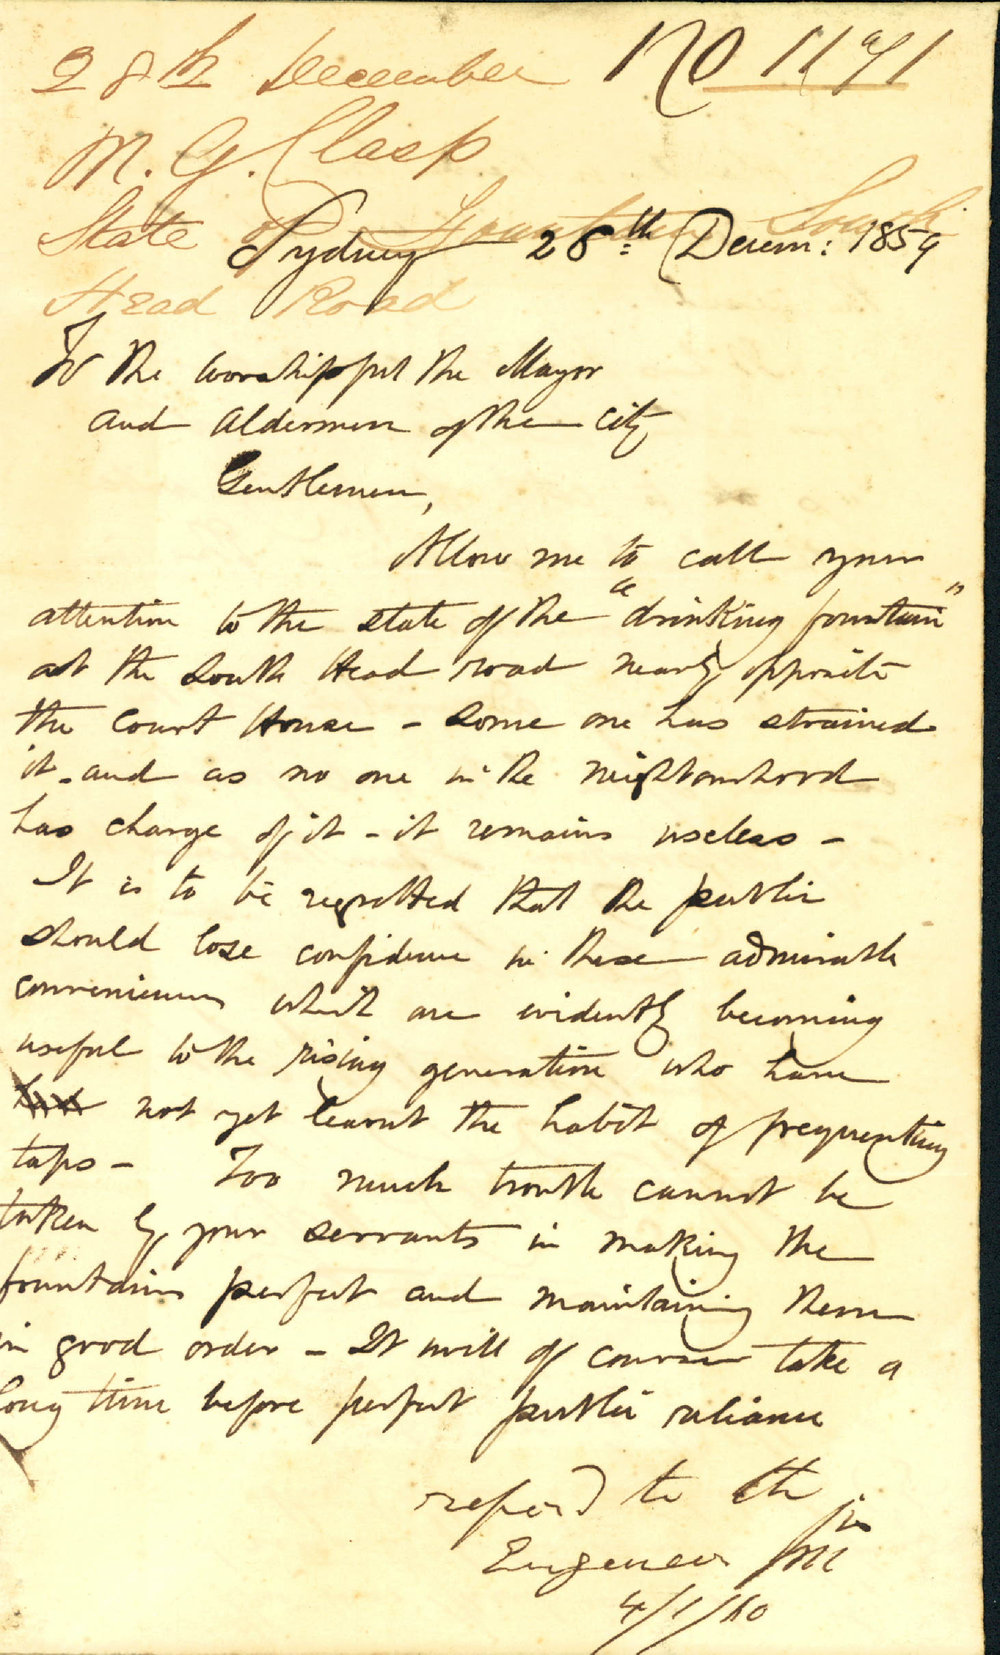 28th December No 1191
M. G. Clasp
State of Fountain South
Sydney 28th Decem: 1859
Head Road
To the worshipful the Mayor
and Aldermen of the City
Gentlemen,
Allow me to call your
attention to the state of the "drinking fountain"
at the South Head road nearly opposite
the Court House - some one has strained
it - and as no one in the neighbourhood
has charge of it - it remains useless -
It is to be regretted that the public
should lose confidence in these admirable
conveniences which are evidently becoming
useful to the rising generation who have
not yet learnt the habit of frequenting
taps - Too much trouble cannot be
taken by your servants in making the
fountains perfect and maintaining them
in good order - It will of course take a
long time before perfect public reliance
refered to the
Engeneer
4/1/60